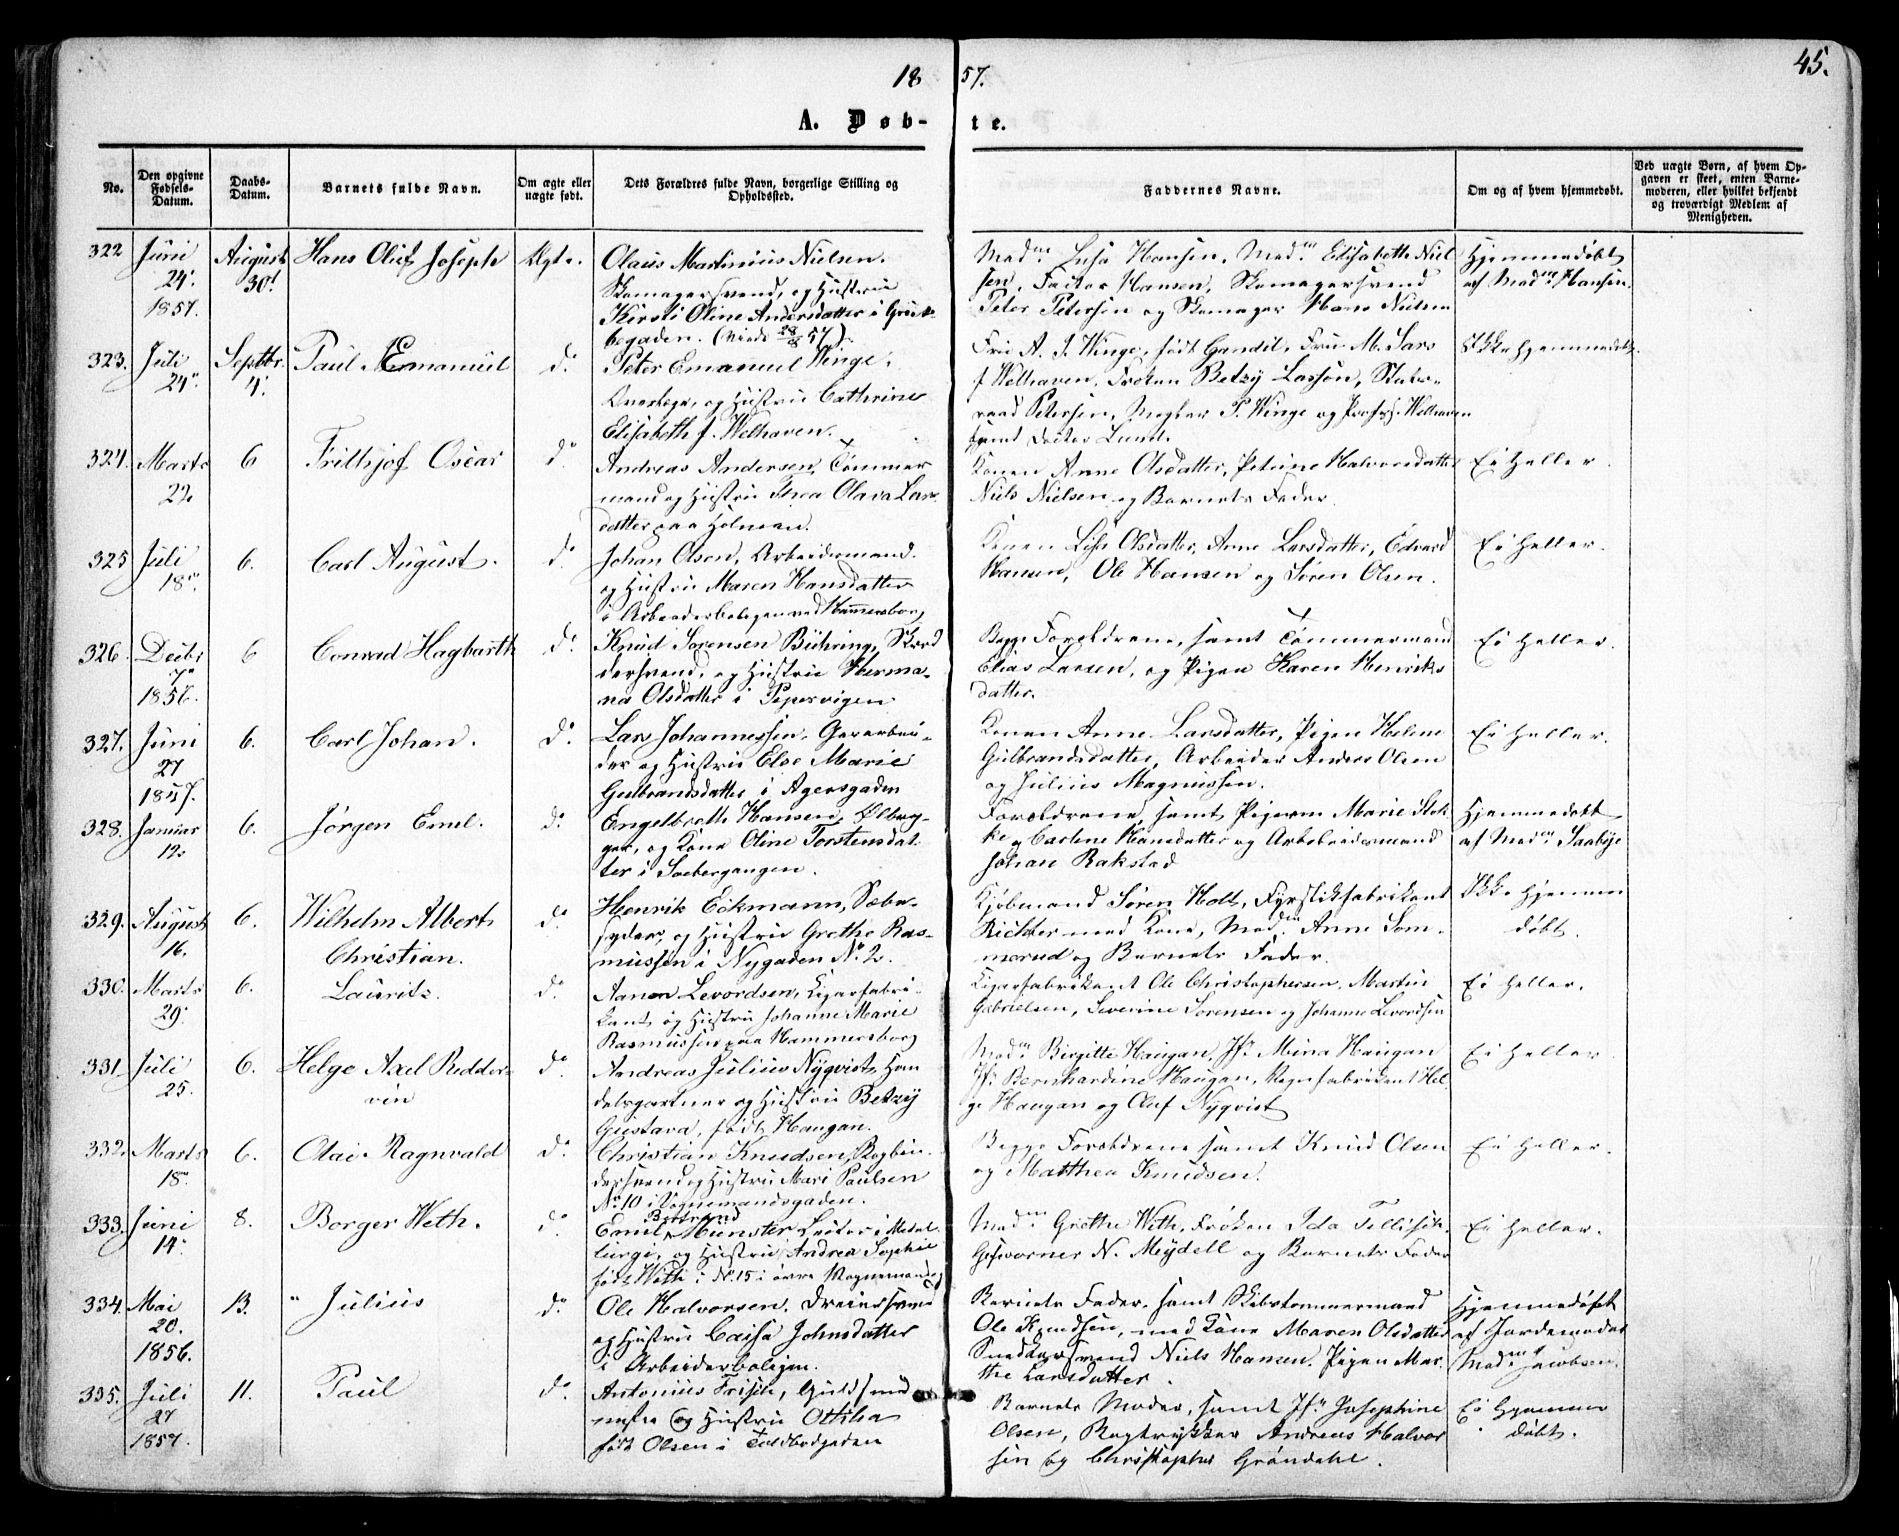 1857.
45.
A. Døbte.
No.
Den opgivne Fødsels-Datum.
Daabs-Datum.
Barnets fulde Navn.
Om ægte eller uægte født.
Dets Forældres fulde Navn, borgerlige Stilling og Opholdssted.
Faddernes Navne.
Om og af hvem hjemmedøbt.
Ved uægte Børn, af hvem Opgaven er skeet, enten Barnemoderen, eller hvilket bekjendt og troværdigt Medlem af Menigheden.
322 Juni 24. 1857. August 30. Hans Oluf Joseph Ægte.
Olaus Martinius Nielsen.
Skomagersvend, og Hustrue
Kirsti Oline Andersdatter i Grændsegaden.
Hansen, Mad. Elisabeth Nielsen, Factor Hansen, Skomagersvend
Peter Petersen og Skomager Hans Nielsen
Hjemmedøbt
af Mad. Hansen.
323. Juli 24. Septbr. 4. Paul Emanuel do.
Peter Emanuel Winge,
og Hustrue Cathrine
Elisabeth f. Welhaven.
Fru A. J. Winge, født Gandil, Fru M. Sars
f. Welhaven, Frøken Betzy Lasson, Statsraad Petersen, P. Winge og Profess. Welhaven
samt Doctor Lund.
Ikke hjemmedøbt.
324. Marts 22 6 Frithjof Oscar do.
Andreas Andersen, Tømmermand og Hustrue Thea Olava Larsdatter paa Holmen.
Konen Anne Olsdatter, Petrine Halvorsdatter
Niels Nielsen og Barnets Fader.
Ei heller.
325 Juli 18 6. Carl August. do.
Johan Olsen, Arbeidsmand.
og Hustrue Maren Hansdatter
i Arbeiderboligen ved Hammersborg
Konen Lise Olsdatter, Anne Larsdatter, Edvard
Hansen, Ole Hansen og Søren Olsen.
Ei heller.
326. Decbr 7 6 Conrad Hagbarth do.
Knud Sørensen Bühring, Skræddersvend, og Hustrue Hermana Olsdatter i Pipervigen
Begge Forældrene, samt Tømmermand
Elias Larsen, og Pigen Karen Henriksdatter.
Ei heller.
327. Juni 27 1857. 6. Carl Johan. do.
Lars Johannessen. Garverbeider og Hustrue Else Marie
Gulbrandsdatter i Agersgaden
Konen Anne Larsdatter, Pigen Helene
Gulbrandsdatter, Arbeider Anders Olsen
og Julius Magnussen.
Ei heller.
328. Januar 12 6. Jørgen Emil. do.
Engelbreth Hansen, Ølbrygger, og Kone Oline Torstensdatter i Voldgangen.
Forældrene, samt Pigerne Marie Stokke og Carlene Hansdatter og Arbeidsmand
Johan Rakstad
Hjemmedøbt
af Mad. Saabye
329. August 16. 6. Wilhelm Albert
Christian. do
Henrik Eckmann, Sæbesyder, og Hustrue Grethe Rasmussen i Nygaden No. 2.
Kjøbmand Søren Holt, Fyrstikfabrikant
Richter med Kone, Mad. Anne Sommerud og Barnets Fader.
Ikke hjemmedøbt.
330. Marts 29. 6. Lauritz. do.
Levordsen, Cigarfabrikant, og Hustru Johanne Marie
Rasmussen paa Hammersborg
Cigarfabrikant Ole Christophersen, Martin
Gabrielsen, Severine Sørensen og Johanne Levordsen
Ei heller.
331 Juli 25. 6. Helge Axel Reddervin do.
Andreas Julius Nyqvist, Handelsgartner og Hustrue Betzy
Gustava, født Haugan.
Mad. Birgitte Haugan, Jfr. Mina Haugan
Jfr. Bernhardine Haugan, Vognfabrikant Helge Haugan og Oluf Nyqvist
Ei heller
332. Marts 18 6. Olai Ragnvald do.
Christian Knudsen, Bogbindersvend og Hustru Mari Paulsen
No. 10 i Vognmandsgaden.
Begge Forældrene samt Knud Olsen
og Matthea Knudsen.
Ei heller.
333. Juni 14. 8. Borger Weth. do
Emil Bertrand Münster Lector i Metallurgi, og Hustru Andrea Sophie
født Weth i No. 15 i øvre Vognmandsg.
Mad. Grethe Weth, Frøken Ida Tellefsen,
Geschworner N. Meydell og Barnets Fader
Ei heller.
334. Mai 20. 1856. 13. " Julius do.
Ole Halvorsen. Dreiersvend
og Hustrue Caisa Johnsdatter
i Arbeiderboligen.
Barnets Fader, samt Skibstømmermand
Ole Knudsen, med Kone Maren Olsdatter
Snedkersvend Niels Hansen. Pigen Marthe Larsdatter.
Hjemmedøbt
af Jordemoder
Mad. Jacobsen.
335. Juli 27 1857. 11. Paul do.
Antonius Frisch, Guldsmed
og Hustrue Ottilia
født Olsen i Toldbodgaden
Barnets Moder, samt Jfr. Josephine
Olsen, Bogtrykker Andreas Halvorsen og Christopher Grøndahl.
Ei hjemmedøbt.